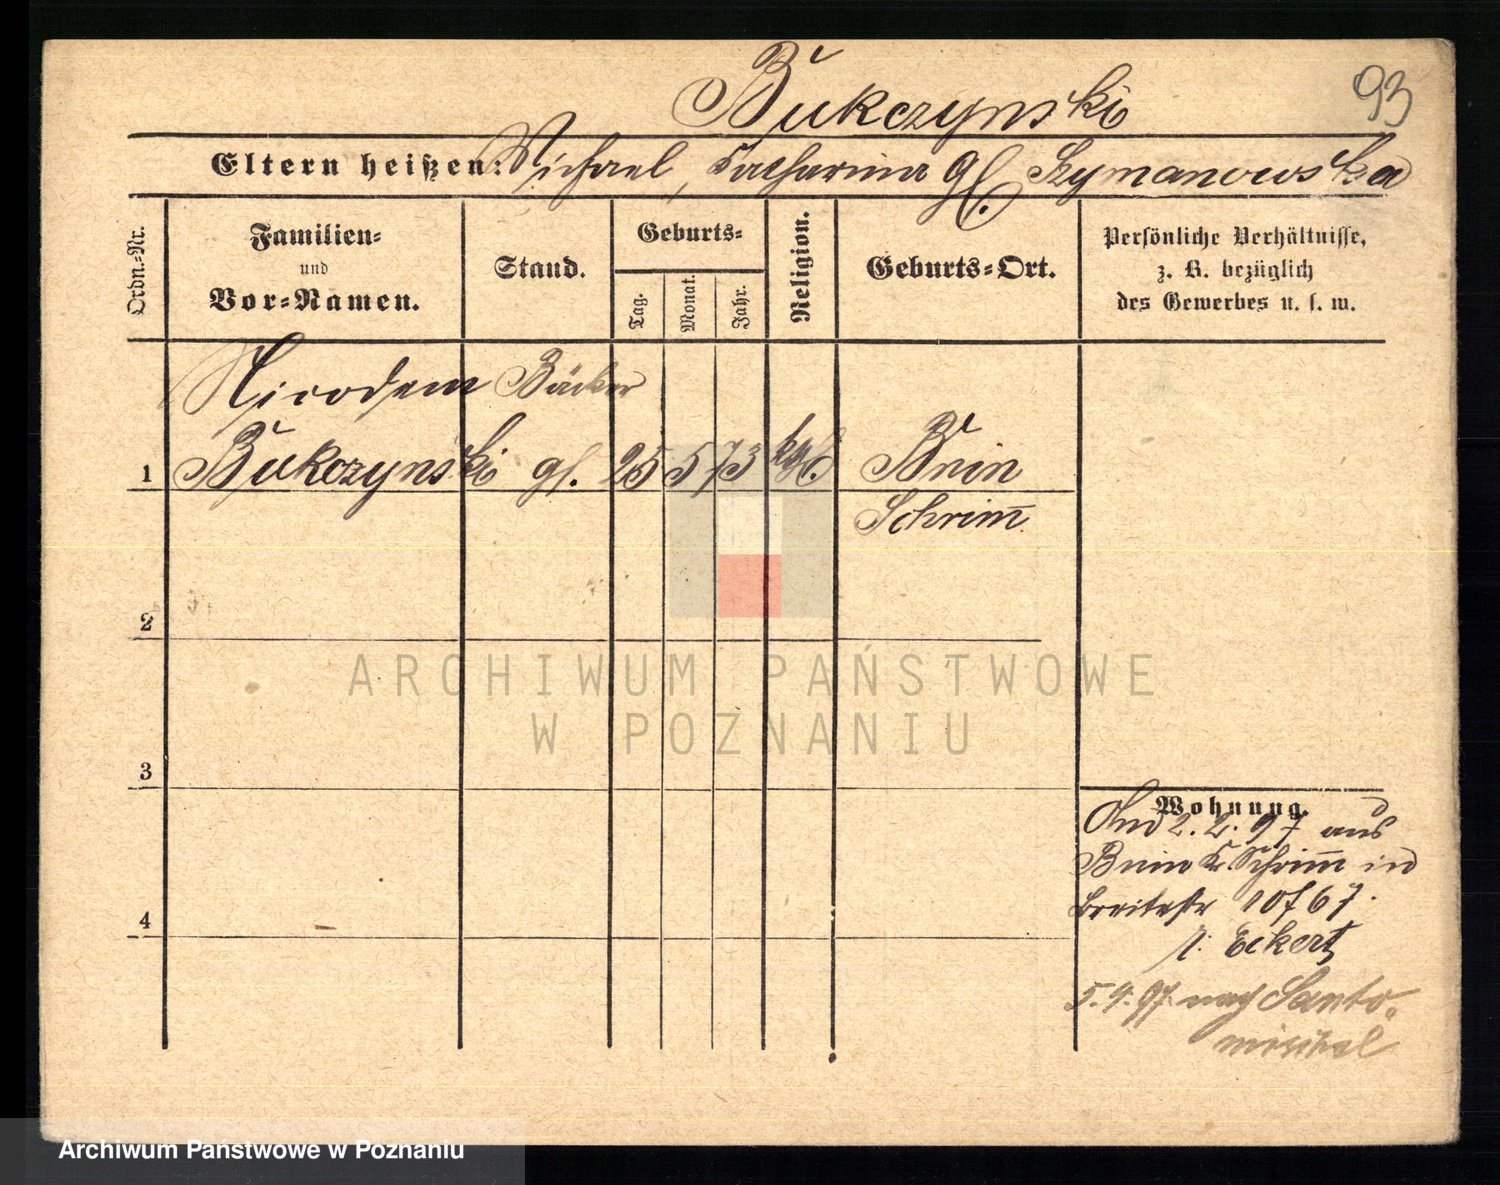 Bukczynski
93
Eltern heißen: Michael, Katharina gb. Szymanowska
Ordn.=Nr.
Familien=
und
Vor=Namen.
Stand.
Geburts=
Tag.
Monat.
Jahr.
Religion.
Geburts=Ort.
Persönliche Verhältnisse,
z. B. bezüglich
des Gewerbes u. s. w.
Nicodem Bäcker
1 Bukczynski gs. 25 5 73 kth. Bnin
Schrim̅
2
3
4
Wohnung.
2. 2. 97 aus
Bnin Kr. Schrim̅ in
Breitestr 10f67.
b. Eckert
5.4.97. nach Santo-
mischel
ARCHIWUM PAŃSTWOWE
W POZNANIU
Archiwum Państwowe w Poznaniu